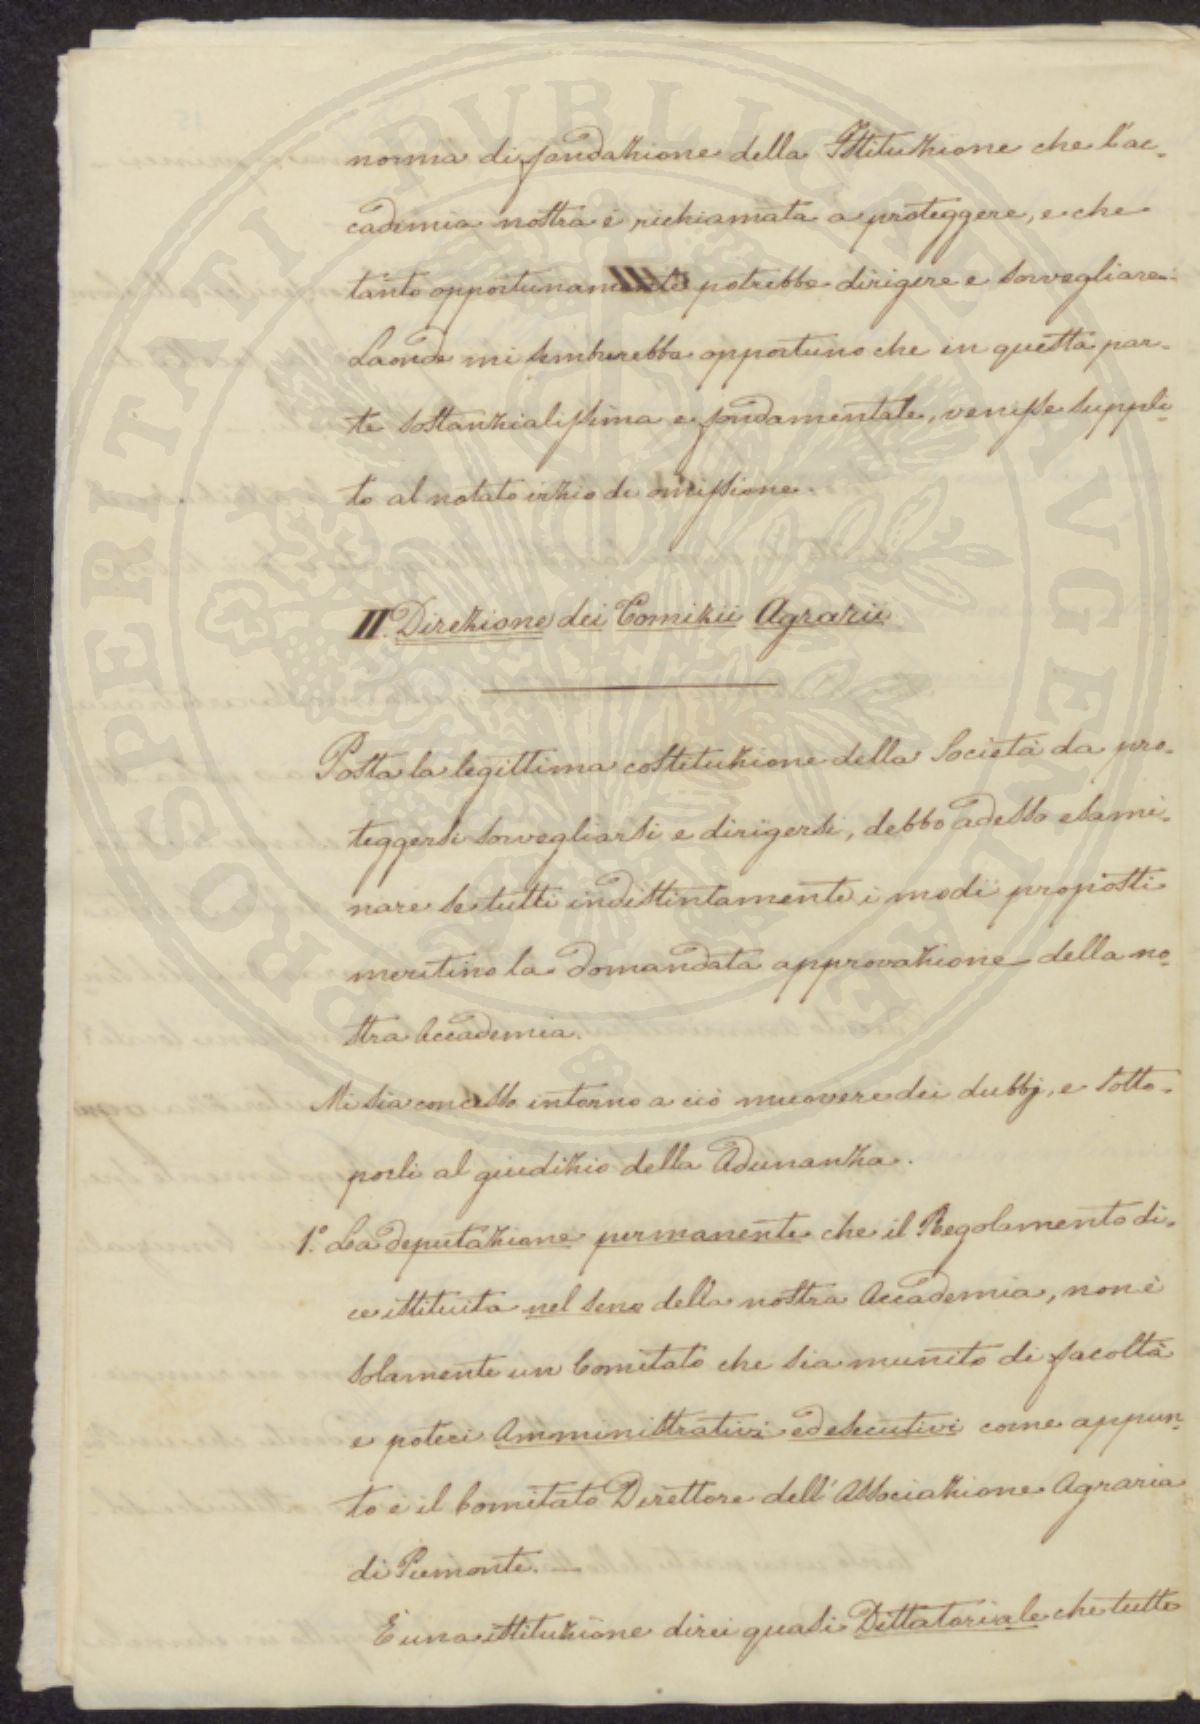 norma di fondazione della Istituzione che l'ac-
cademia nostra è richiamata a proteggere, e che
tanto opportunamente potrebbe dirigere e sorvegliare.
Laonde mi sembrerebbe opportuno che in questa par-
te sostanzialissima e fondamentale, venisse suppli-
to al notato vizio di omissione.
II. Direzione dei Comizii Agrarii
Posta la legittima costituzione della Società da pro-
teggersi sorvegliarsi e dirigersi, debbo adesso esami-
nare se tutti indistintamente i modi proposti
meritino la domandata approvazione della no-
stra Accademia.
Mi sia concesso intorno a ciò muovere dei dubbj, e sotto-
porli al giudizio della Adunanza.
1.° La deputazione permanente che il Regolamento di-
ce istituita nel seno della nostra Accademia, non è
solamente un Comitato che sia munito di facoltà
e poteri Amministrativi ed esecutivi come appun-
to è il Comitato Direttore dell'Associazione Agraria
di Piemonte. —
È una istituzione direi quasi Dittatoriale che tutte
PROSPERITATI PUBLICAE AUGENDAE